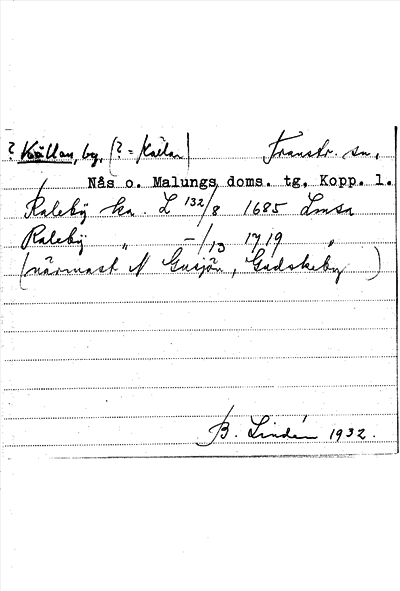 ? Källan, by, (? = Kallan) Transtr. sn.
Nås o. Malungs doms. tg. Kopp. l.
Kaleby ka. L 132/8 1685 Lmsa
Kaleby " -/13 1719 "
(närmast N Gusjön, Gadskeby)
B. Lindén 1932.